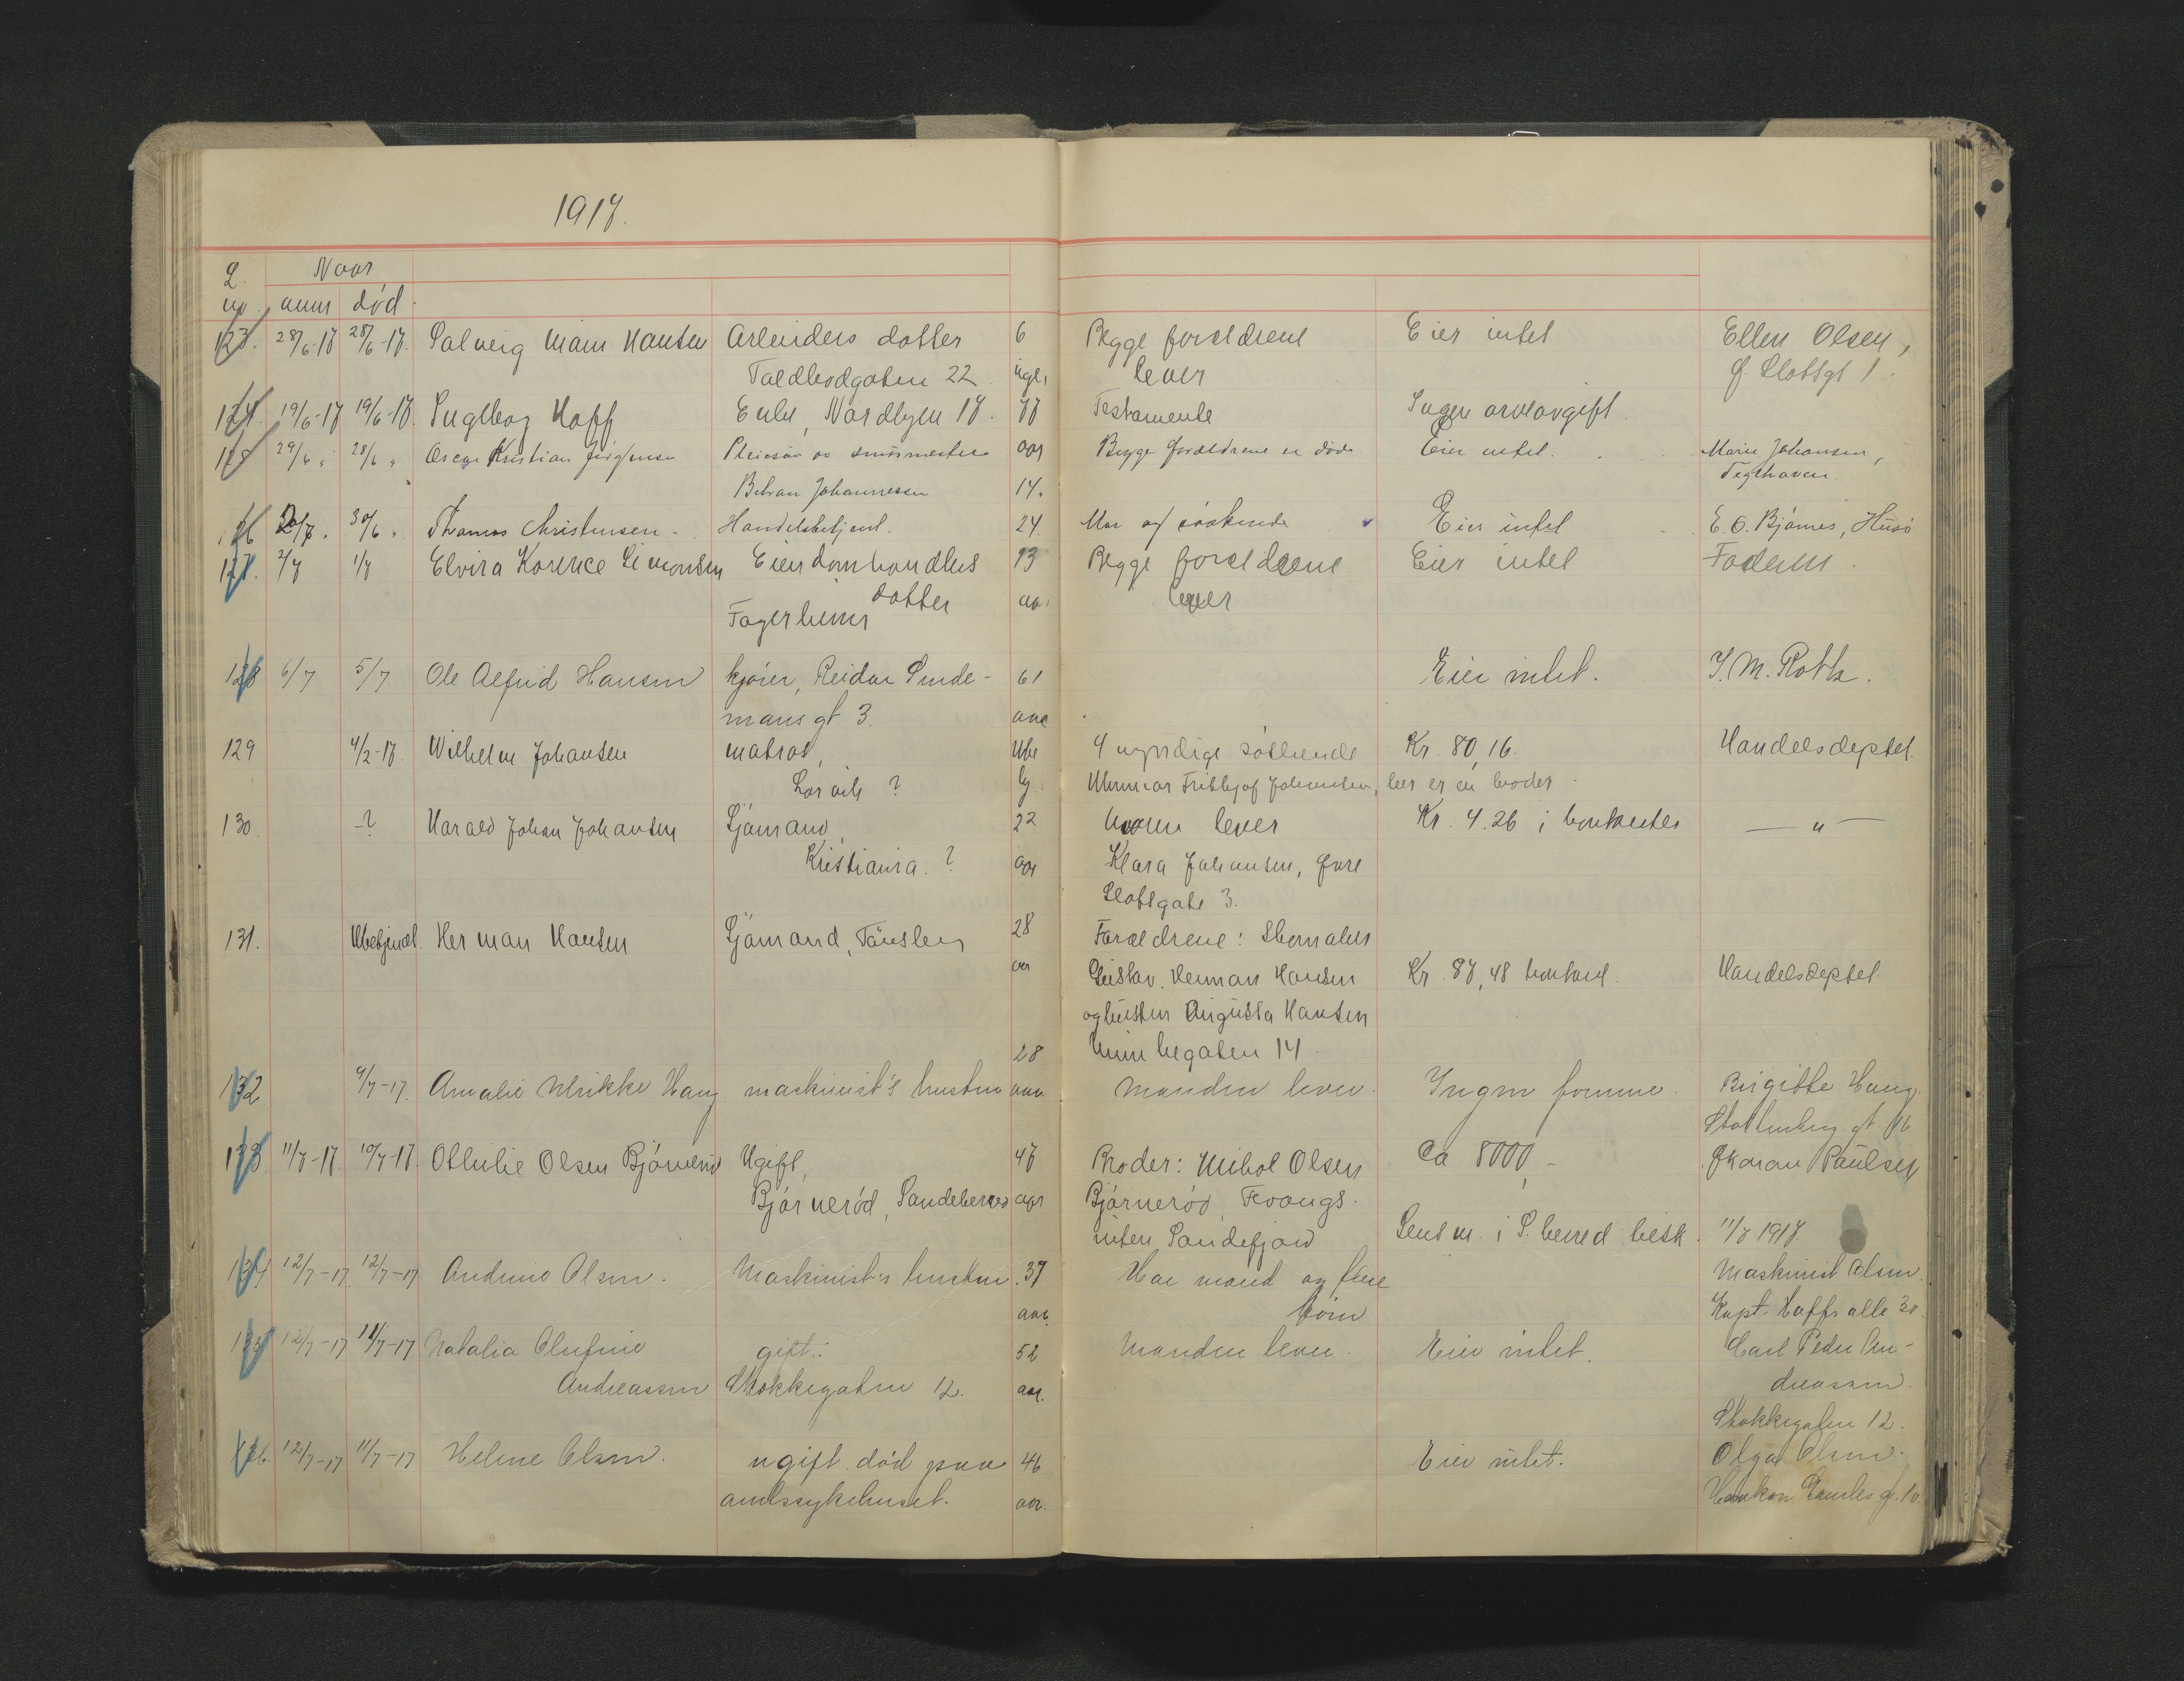 1917.
L. Naar
no. anm død.
123. 28/6-17 28/6-17. Solveig Marie Hansen Arbeiders datter 6 Begge forældrene Eier intet Ellen Olsen,
Toldbodgaten 22. ugl, lever Ø. Slottsgt 1.
124. 19/6-17 19/6-17. Ingeborg Hoff Enke, Nordbyen 18. 77 Testamente Ingen arveavgift.
125 29/6 " 28/6 " Oscar Kristian Jørgensen Pleiesøn av smørmester aar Begge forældrene er døde Eier intet. Marie Johansen,
Betran Johannessen 14. Teglhaven.
126 2/7. 30/6 " Thomas Christensen. Handelsbetjent. 24. Mor og søskende Eier intet E. O. Bjørnes, Husø
127. 2/7 1/7 Elvira Korence Simonsen Eiendomhandlers 13 Begge forældrene Eier intet Faderen.
datter aar lever
Fagerheim
128 6/7 5/7 Ole Alfred Hansen kjører, Reidar Sende- 61 Eier intet. I. M. Roth.
mans gt 3. aar
129 4/2-17 Wilhelm Johansen matros, Ube 4 myndige søskende Kr. 80,16. Handelsdeptet.
Larvik ? kj. Gunnar Fridtjof Johansen, her er en broder.
130. -? Harald Johan Johansen Sjømand, 22 Moren lever Kr. 4.26 i kontanter — " —
Kristiania. ? aar Klara Johansen, Øvre
Slottsgate 3.
131. Ubekjendt. Herman Hansen Sjømand, Tønsberg 28 Forældrene: Skomaker
aar Gustav Herman Hansen Kr. 87,48 kontant Handelsdeptet
og hustru Augusta Hansen
28 Munkegaten 14.
132. 9/7-17. Amalie Ulrikke Haug maskinist's hustru aar. Manden lever. Ingen formue. Birgitte Haug.
Stoltenberg. gt 16
133. 11/7-17. 10/7-17 Othilie Olsen Bjørnerød Ugift, 47 Broder: Mikal Olsen Ca 8000,- Paulsen
Bjørnerød, Sandeherred aar Bjørnerød, Fevangs-
ruten Sandefjord Lensm. i S. herred besk. 11/7 1917.
134 12/7-17 12/7-17 Andrine Olsen. Maskinist's hustru. 37 Har mand og flere Maskinist Olsen.
aar. børn Kapt. Hoffs alle 30
135 12/7-17 11/7-17 Natalia Olufine gift. 52 Manden lever. Eier intet. Carl Peder An-
Andreassen Stokkegaten 12. aar. dreassen.
Stokkegaten 12.
136. 12/7-17 11/7-17 Helene Olsen. ugift. død paa 46 Eier intet. Olga Olsen.
amtssykehuset. aar. Haakon Gamles gt. 10